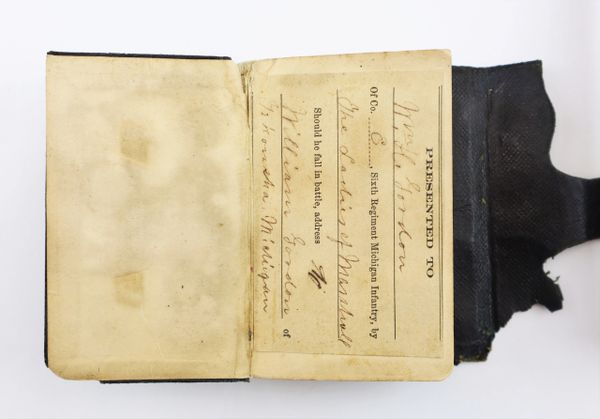 PRESENTED TO
Wm H. Gordon
Of Co. C, Sixth Regiment Michigan Infantry, by
The Ladies of Marshall
Should he fall in battle, address
William Gordon of
Michigan